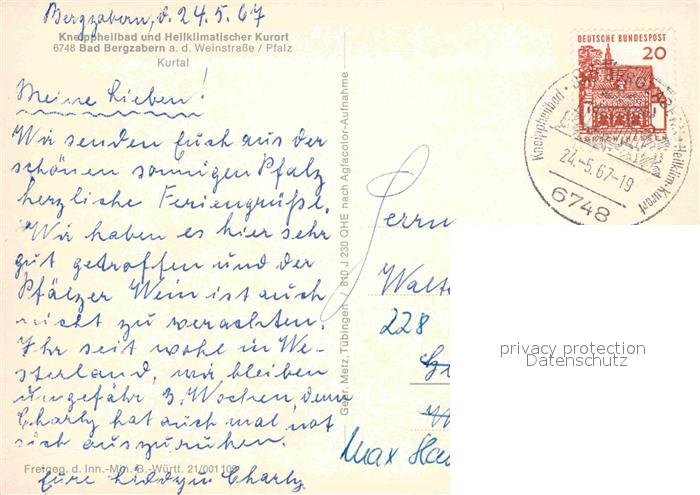 Bergzabern, d. 24.5.67
Kneippheilbad und Heilklimatischer Kurort
6748 Bad Bergzabern a. d. Weinstraße / Pfalz
Kurtal
Meine Lieben!
Wir senden Euch aus der
schönen sonnigen Pfalz
herzliche Feriengrüße.
Wir haben es hier sehr
gut getroffen und der
Pfälzer Wein ist auch
nicht zu verachten.
Ihr seit wohl in We-
sterland, wir bleiben
ungefähr 3 Wochen, denn
Charly hat auch mal not
sich auszuruhen.
Eure Liddy u Charly
Freigeg. d. Inn.-Min. B.-Württ. 21/001 109
Gebr. Metz, Tübingen 810 J 230 QHE nach Agfacolor-Aufnahme
DEUTSCHE BUNDESPOST
20
Kneippheilbad · BAD BERGZABERN · Heilklim-Kurort
24.-5.67-19
6748
Herrn
Walte
228
Max
privacy protection
Datenschutz